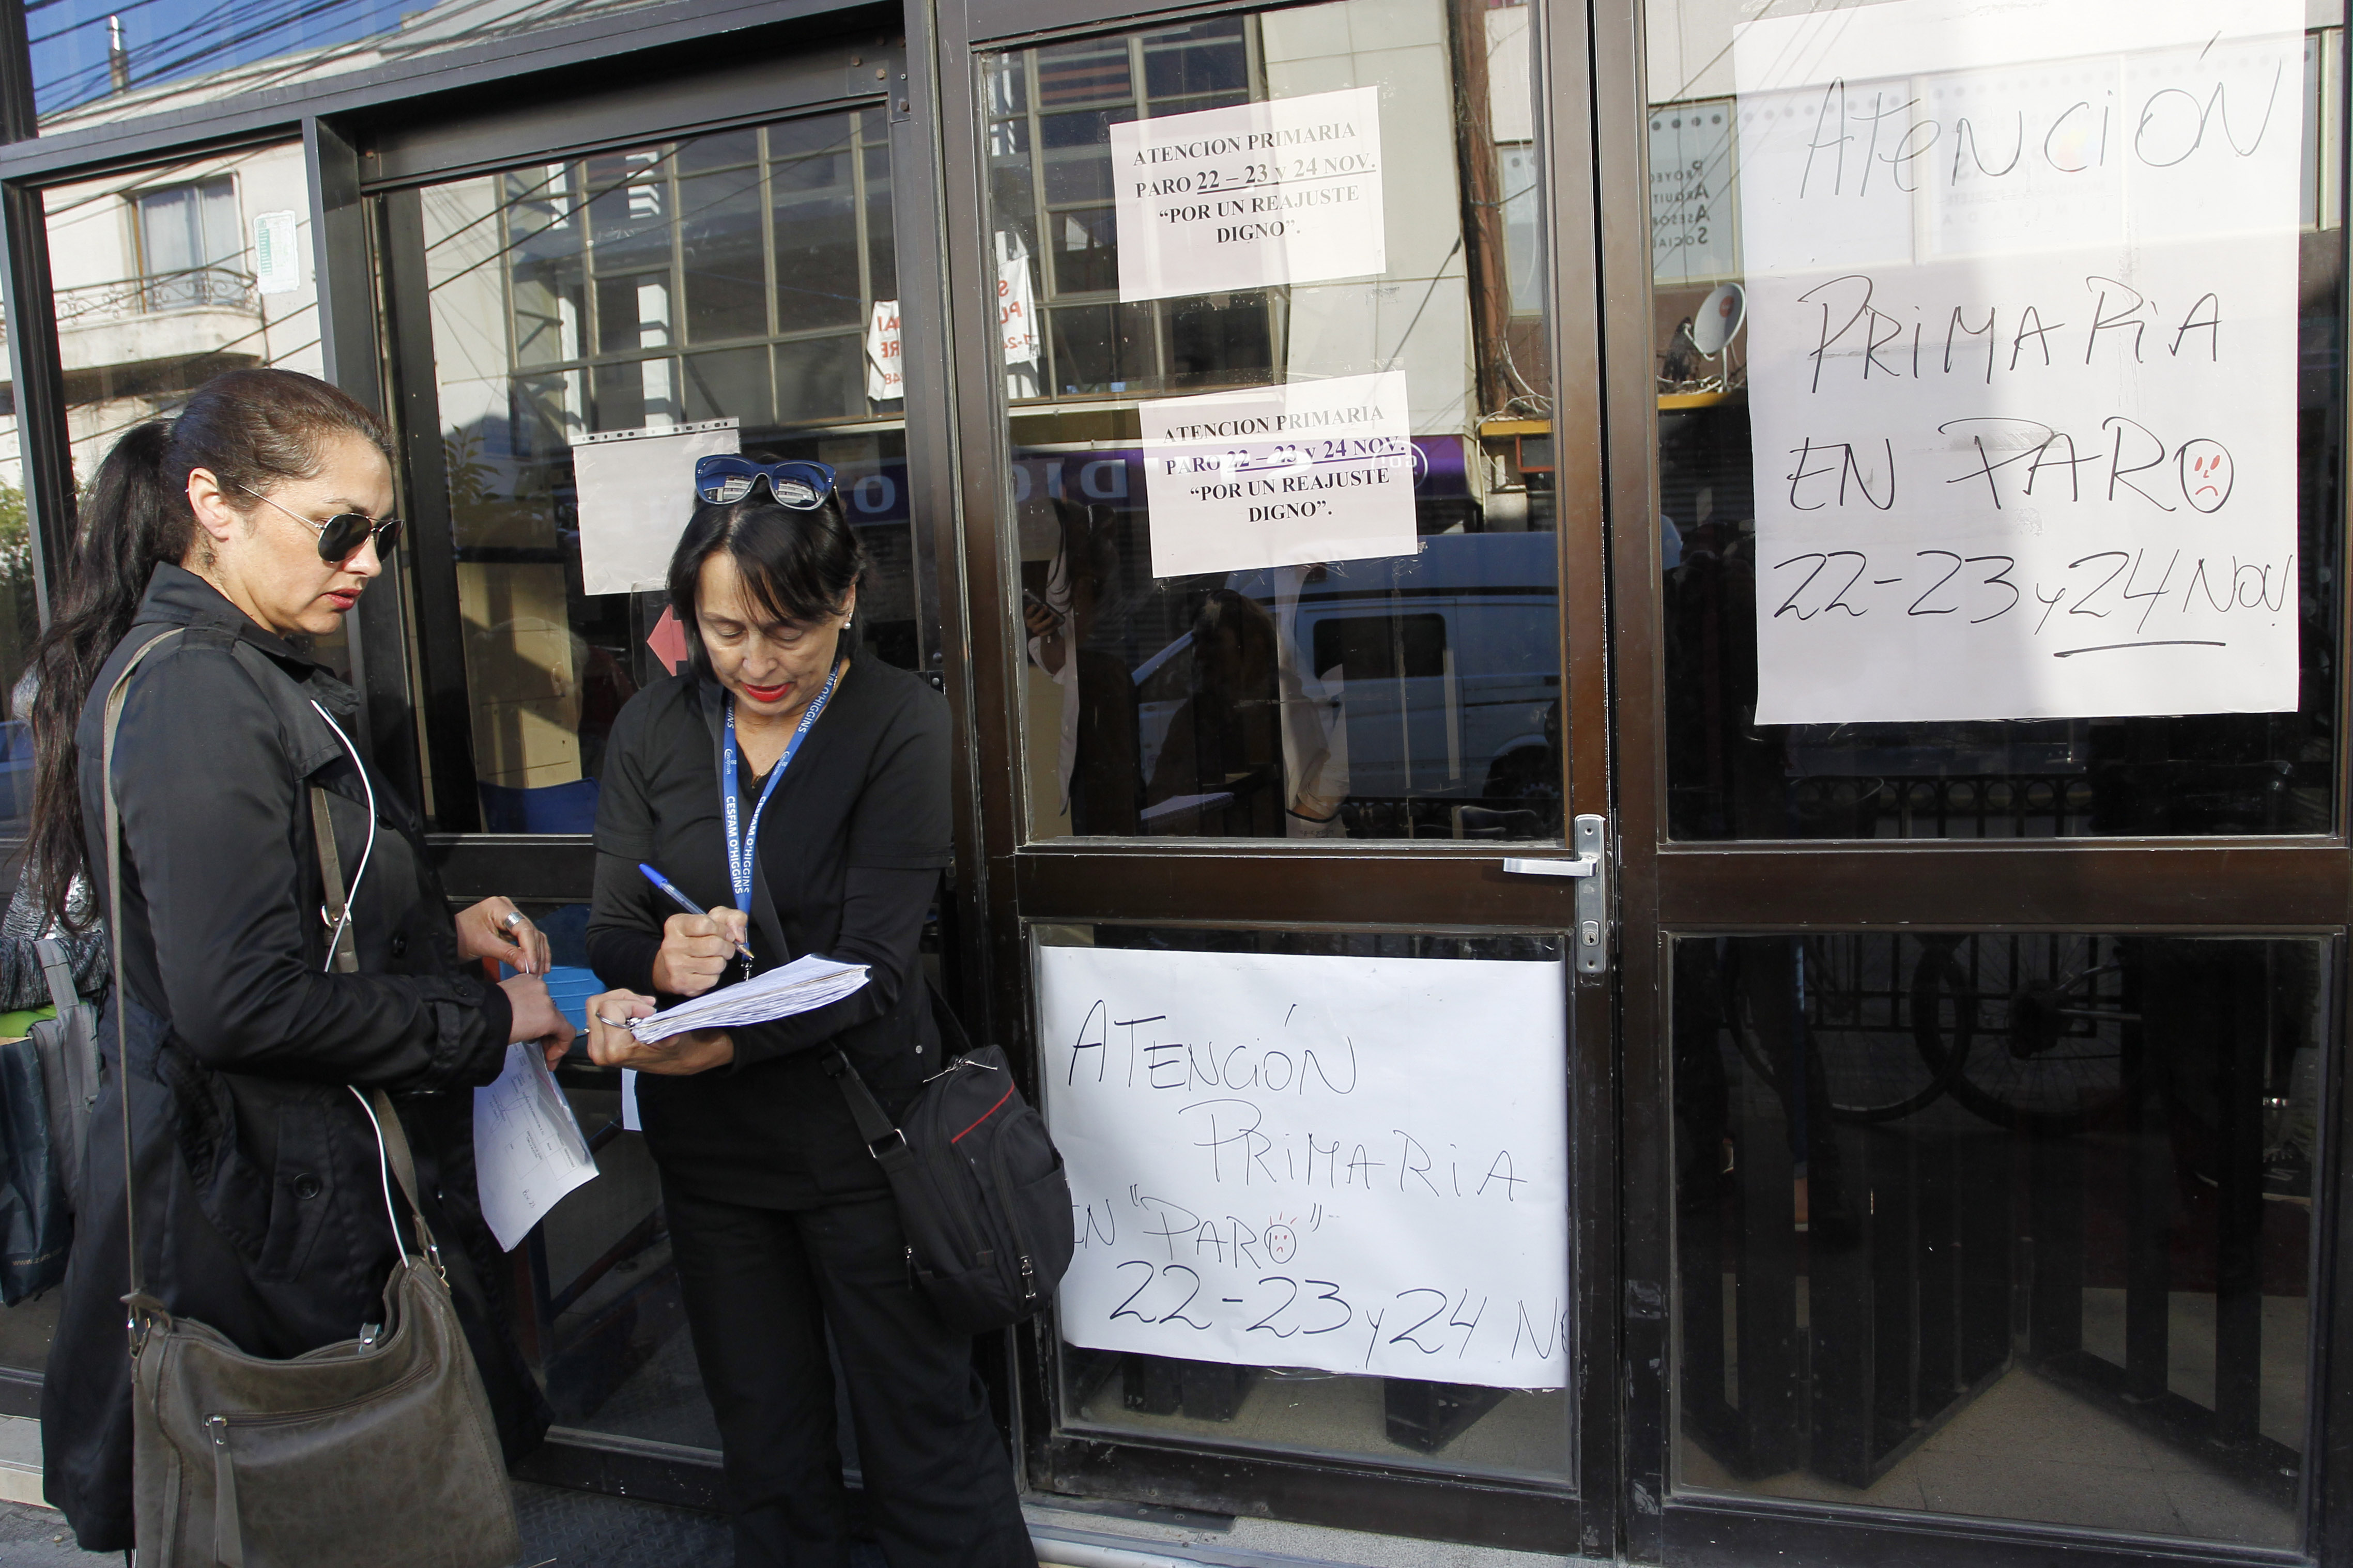 ATENCION PRIMARIA
PARO 22 – 23 y 24 NOV.
“POR UN REAJUSTE
DIGNO”.
ATENCION PRIMARIA
PARO 22 – 23 y 24 NOV.
“POR UN REAJUSTE
DIGNO”.
ATENCIÓN
PRIMARIA
EN PARO
22-23 y 24 NOV.
ATENCIÓN
PRIMARIA
EN "PARO"
22-23 y 24 NO
CESFAM O'HIGGINS
CESFAM O'HIGGINS
O'HIGGINS